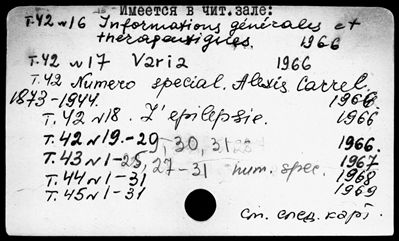 Имеется в чит. зале:
Т.42 №16 Informations générales et
thérapeutiques. 1966
Т.42 №17 Varia 1966
Т.42 Numero special. Alexis Carrel.
1873-1944. 1966
Т.42 №18. L'epilepsie. 1966
Т.42 №19.-29, 30, 31 1966.
Т.43 №1-25, 27-31 num. spec. 1967
Т.44 №1-31 1968
Т.45 №1-31 1969
См. след. карт.